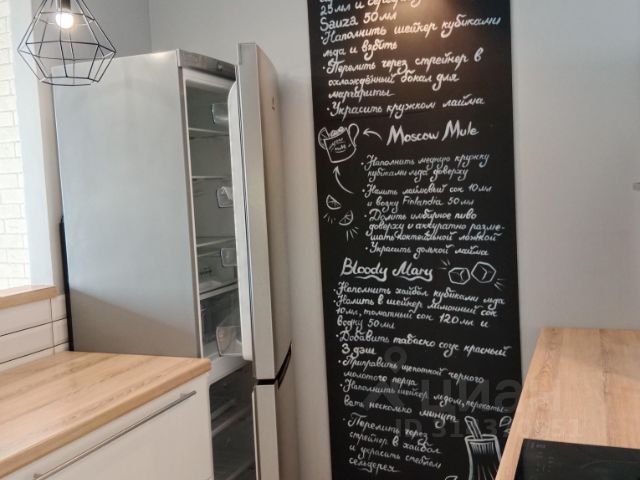 25мл и
Sauza 50мл
•Наполнить шейкер кубиками
льда и взбить
•Перелить через стрейнер в
охлаждённый бокал для
маргариты
•Украсить кружком лайма
Moscow Mule
•Наполнить медную кружку
кубиками льда доверху
•Налить лаймовый сок 10мл
и водку Finlandia 50мл
•Долить имбирное пиво
доверху и аккуратно разме-
шать коктейльной ложкой
•Украсить долькой лайма
Bloody Mary
•Наполнить хайбол кубиками льда
•Налить в шейкер лимонный сок
10мл, томатный сок 120мл и
водку 50мл
•Добавить табаско соус красный
3 дэш
•Приправить щепоткой чёрного
молотого перца
•Наполнить шейкер льдом,
вать несколько минут
•Перелить через
стрейнер в хайбол
и украсить стеблем
сельдерея
циан